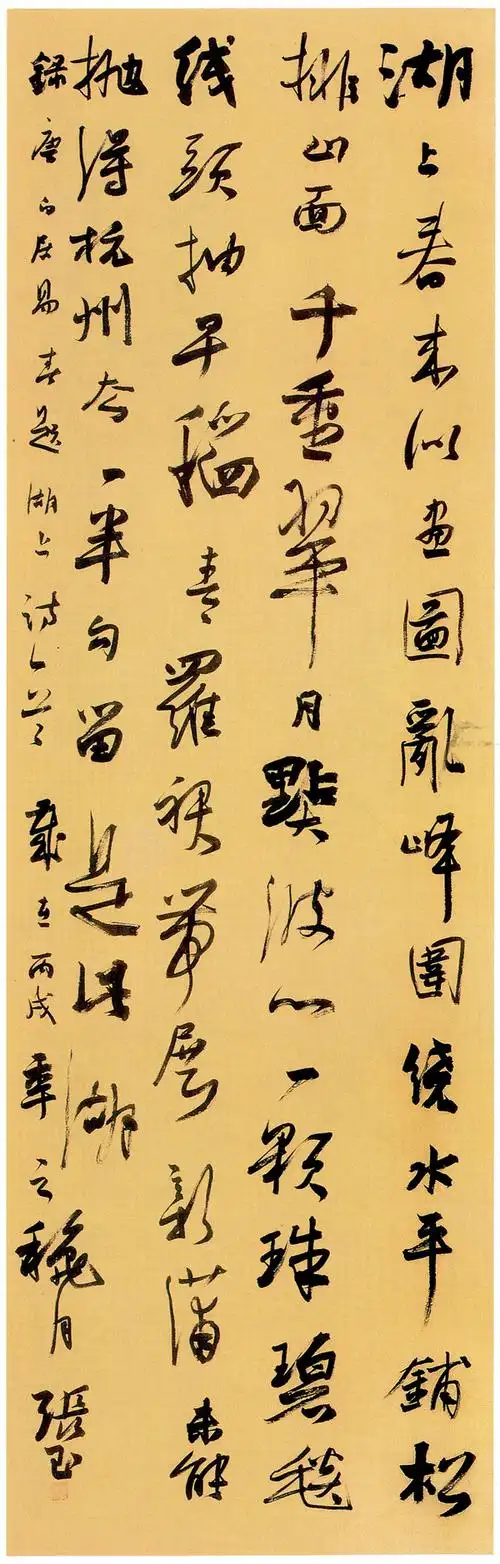 湖上春来似画圖亂峰圍繞水平鋪松
排山面千重翠月點波心一顆珠碧毯
线頭抽早稻青羅裙帶展新蒲未能
抛得杭州去一半勾留是此湖
錄唐白居易春題湖上詩一首歲在丙戌秊之穐月張玉